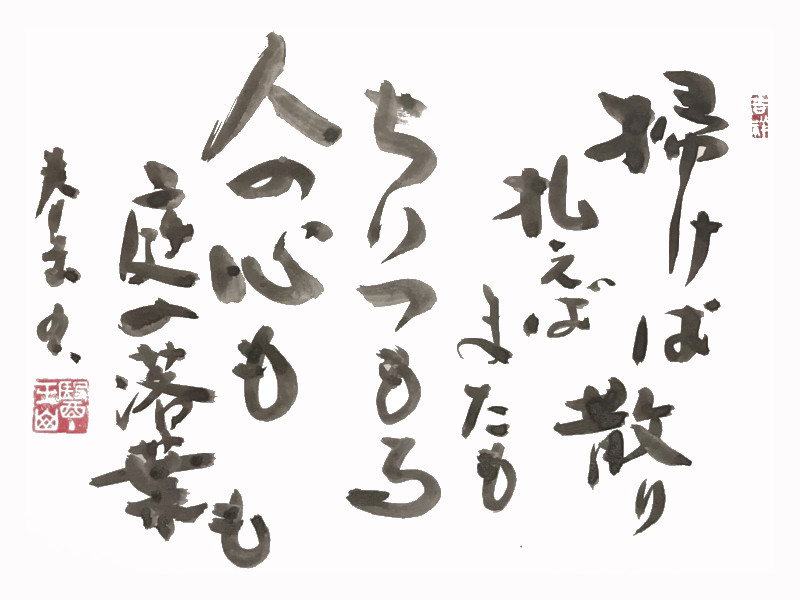 掃けば散り
払えば
またも
ちりつもる
人の心も
庭の落葉も